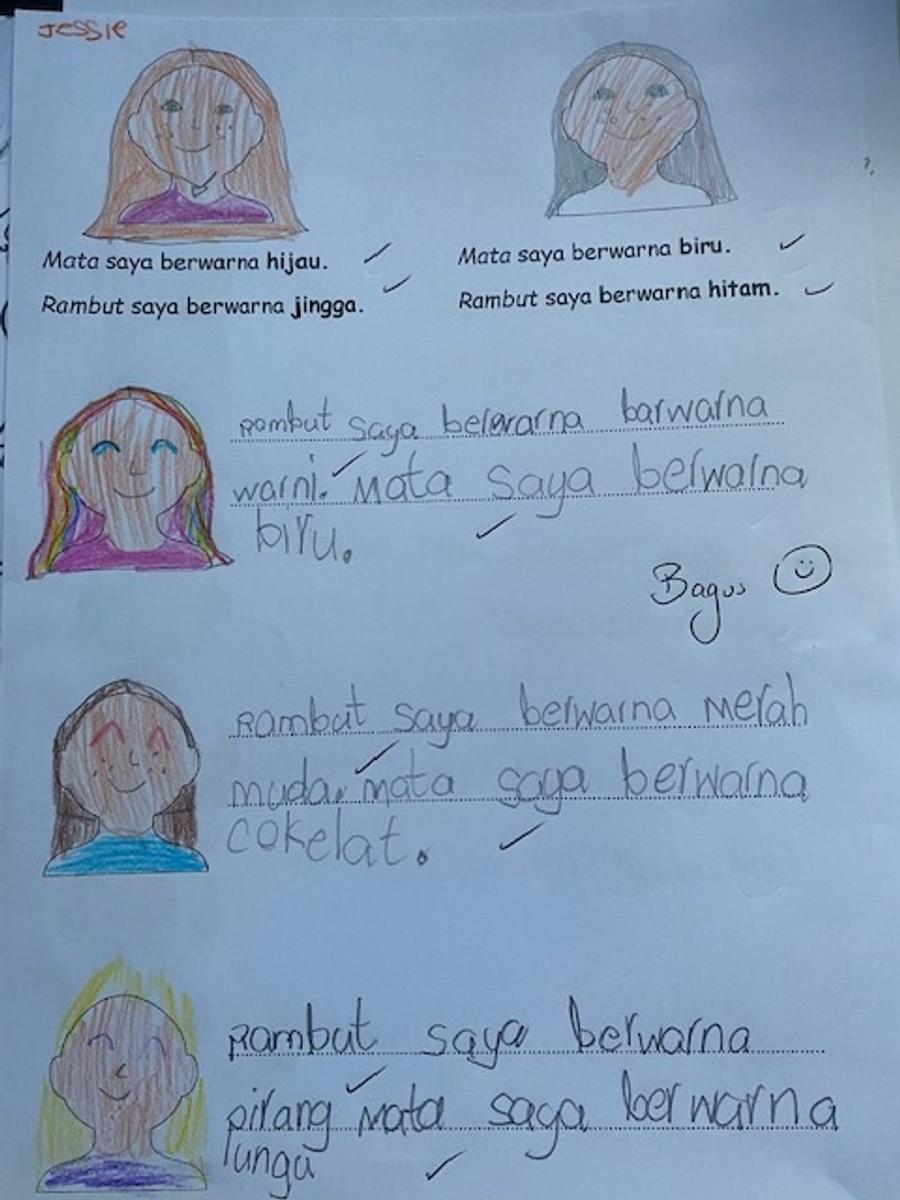 Jessie
Mata saya berwarna hijau.
Rambut saya berwarna jingga.
Mata saya berwarna biru.
Rambut saya berwarna hitam.
Rambut saya berwarna barwarna
warni. Mata saya berwarna
biru.
Bagus
Rambut saya berwarna Merah
muda. mata saya berwarna
cokelat.
Rambut saya berwarna
pirang Mata saya berwarna
lungu